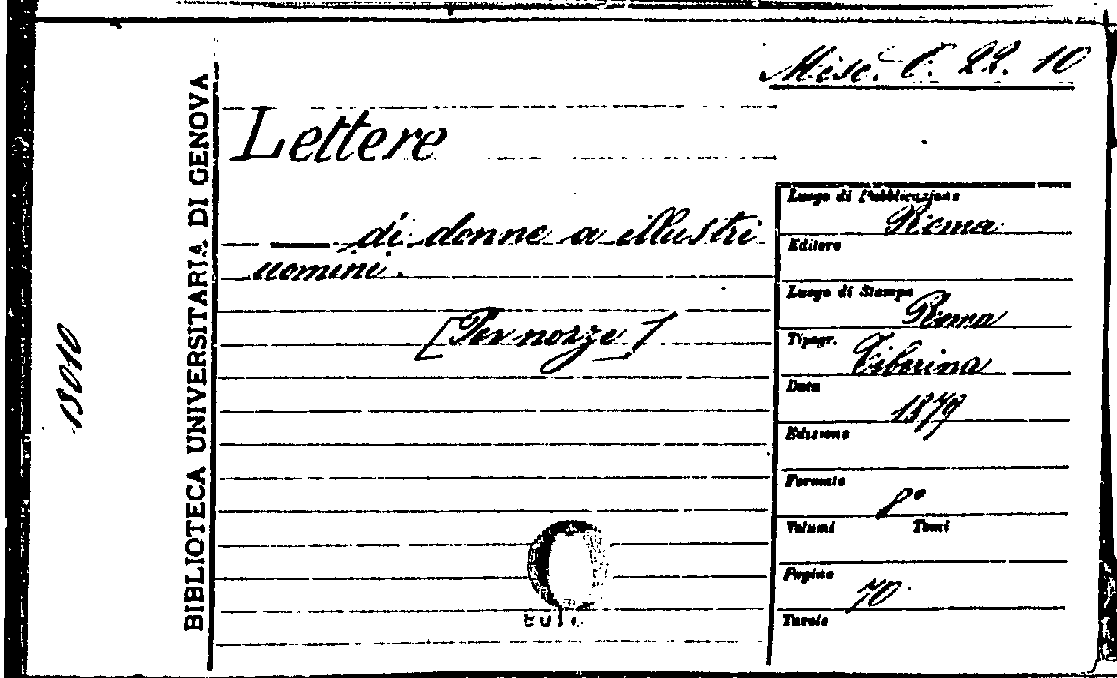 Misc. C. 22. 10
BIBLIOTECA UNIVERSITARIA DI GENOVA
13010
Lettere
— di donne a illustri
uomini.
[Per nozze]
Luogo di Pubblicazione
Roma
Editore
Luogo di Stampa
Roma
Tipogr. Tiberina
Data
1879
Edizione
Formato
8°
Volumi Tomi
Pagine
70
Tavole